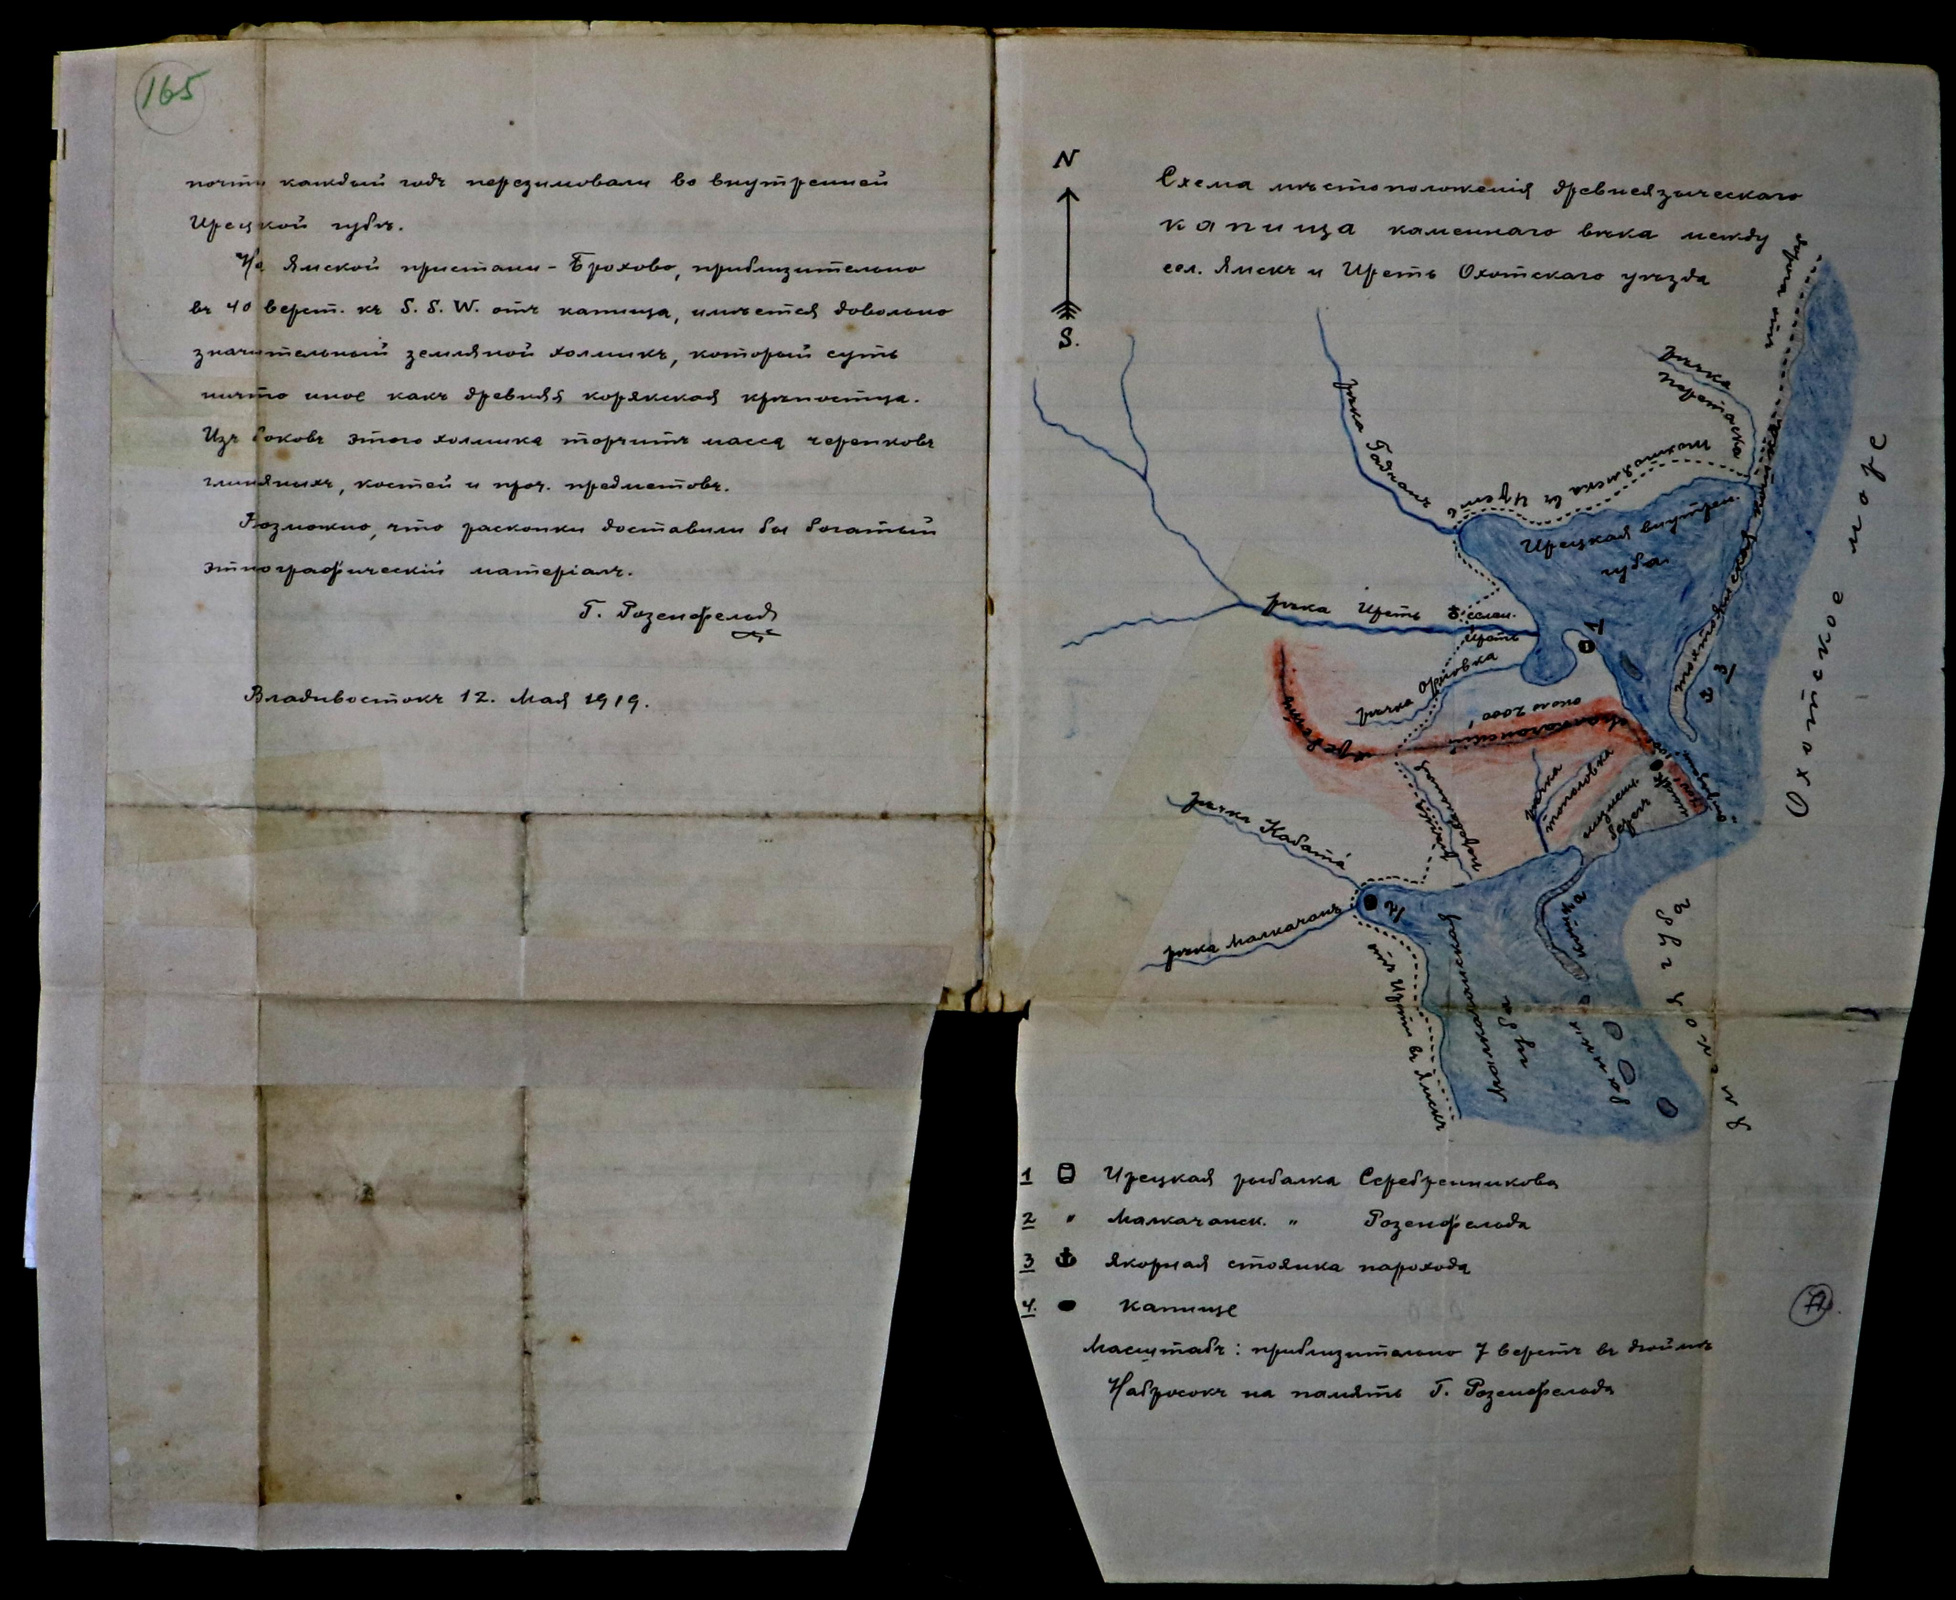 165
почти каждый годъ перезимовали во внутренней
Ирецкой губѣ.
На Ямской пристани - Брохово, приблизительно
въ 40 верст. къ S. S. W. отъ капища, имѣется довольно
значительный земляной холмикъ, который суть
ничто иное какъ древняя корякская крѣпостца.
Изъ боковъ этого холмика торчитъ масса черепковъ
глиняныхъ, костей и проч. предметовъ.
Возможно, что раскопки доставили бы богатый
этнографическій матеріалъ.
Г. Розенфельдъ
Владивостокъ 12. Мая 1919.
N
S.
Схема мѣстоположенія древнеязыческаго
капища каменнаго вѣка между
сел. Ямскъ и Иреть Охотскаго уѣзда
рѣчка Гадкачъ
рѣчка
изъ Ямска въ Иреть
Ирецкая внутрен.
губа.
Охотское море
рѣчка Иреть
селен.
Иреть
1
3
рѣчка
около 2000'
рѣчка
Тополовка
рѣчка Кабата
рѣчка Малкачанъ
2
изъ Ирети въ Ямскъ
Малкачанская
губа
1 Ирецкая рыбалка Серебренникова
2 " Малкачанск. " Розенфельда
3 Якорная стоянка парохода
4. Капище
Масштабъ: приблизительно 7 верстъ въ дюймѣ
Набросокъ на память Г. Розенфельда